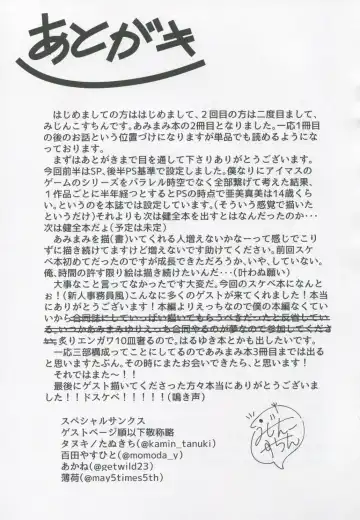 あとがキ
はじめましての方ははじめまして、２回目の方は二度目まして、
みじんこすちんです。あみまみ本の2冊目となりました。一応1冊目
の後のお話という位置づけになりますが単品でも読めるようになっ
ております。
まずはあとがきまで目を通して下さりありがとうございます。
今回前半はSP、後半PS基準で設定しました。僕なりにアイマスの
ゲームのシリーズをパラレル時空でなく全部繋げて考えた結果、
１作品ごとに半年経つとするとPSの時点で亜美真美は14歳くら
い。というのを本誌では設定しています。（そういう感覚で描いた
というだけ）それよりも次は健全本を出すとはなんだったのか･･･
次は健全本だよ（予定は未定）
あみまみを描（書）いてくれる人増えないかなーって感じでこり
ずに描き続けてますけど増えないです助けてください。前回スケ
ベ本初めてだったのですが成長できただろうか、いや、していない。
俺、時間の許す限り絵は描き続けたいんだ･･･（叶わぬ願い）
大事なこと言ってなかったです大変だ。今回のスケベ本になんと
ぉ！（新人事務員風）こんなに多くのゲストが来てくれました！本当
にありがとうございます！本編よりえっちなので僕の本編なくてい
いから合同誌にしていっぱい描いてもらうべきだったと反省してい
る。いつかあみまみゆりえっち合同やるのが夢なので参加してくださ
い炙りエンガワ10皿奢るので。はるゆき本とかも出したいです。
一応三部構成ってことにしてるのであみまみ本3冊目までは出る
と思いますたぶん。その時にまたお会いできたら、と思います！
それではまたー！！
最後にゲスト描いてくださった方々本当にありがとうございま
した！！ドスケベ！！！！！（鳴き声）
スペシャルサンクス
ゲストページ順以下敬称略
タヌキノたぬきち(@kamin_tanuki)
百田やすひと(@momoda_y)
あかね(@getwild23)
薄荷(@may5times5th)
みじんこすちん